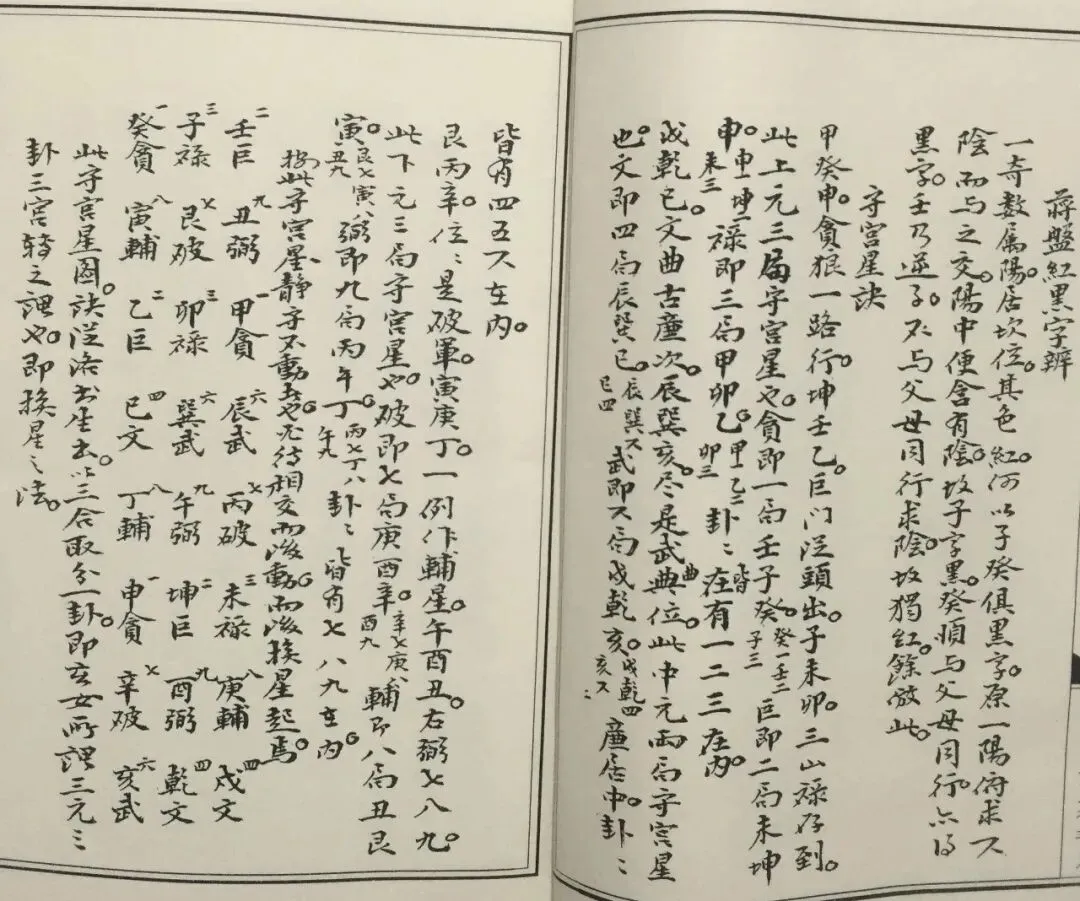 蔣盤紅黑字辨
一奇數屬陽。居坎位。其色紅。何以子癸俱黑字。原一陽俯求六
陰而與之交。陽中便含有陰。故子字黑。癸順與父母同行。亦為
黑字。壬乃逆子。不與父母同行求陰。故獨紅。餘倣此。
守宮星訣
甲癸申。貪狼一路行。坤壬乙。巨门從頭出。子未卯。三山祿存到。
此上元三局守宮星也。貪即一局壬子癸。癸一壬二子三巨即二局未坤
申。申一坤二未三祿即三局甲卯乙。甲一乙二卯三卦卦皆在有一二三在內。
戌乾巳。文曲古廉次。辰巽亥。尽是武曲位。此中元兩局守宮星
也。文即四局辰巽巳。辰巽六巳四武即六局戌乾亥。戌乾四亥六廉居中。卦卦
皆有四五六在內。
艮丙辛。位位是破軍。寅庚丁。一例作輔星。午酉丑。右弼七八九。
此下元三局守宮星也。破即七局庚酉辛。辛七庚八酉九輔即八局丑艮
寅。艮七寅八丑九弼即九局丙午丁。丙七丁八午九卦卦皆有七八九在內。
按此守宮星靜守不動者也。必待相交而後動。而後挨星起焉。
二壬巨 九丑弼 一甲貪 六辰武 七丙破 三未祿 八庚輔 四戌文
三子祿 七艮破 三卯祿 六巽武 九午弼 二坤巨 九酉弼 四乾文
一癸貪 八寅輔 二乙巨 四巳文 八丁輔 一申貪 七辛破 六亥武
此守宮星圖。訣從洛書生去。以三合取分一卦。即玄女所謂三元三
卦三宮轉之謂也。即挨星之法。